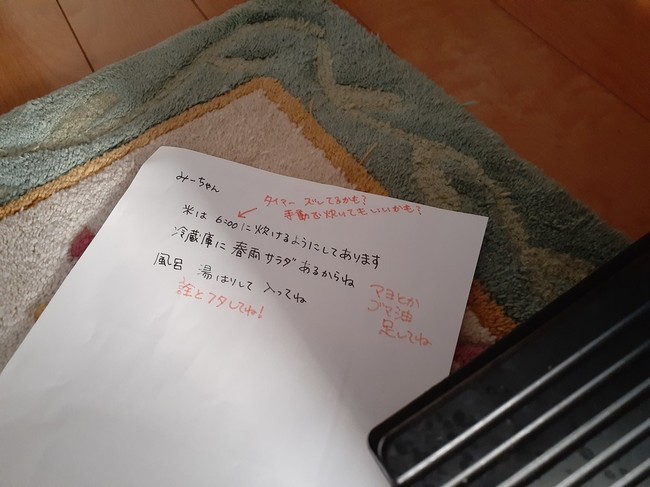 みーちゃん
タイマー ズレてるかも?
手動で炊いてもいいかも?
米は 6:00に炊けるようにしてあります
冷蔵庫に 春雨サラダ あるからね
マヨとか
ゴマ油
足してね
風呂 湯はりして 入ってね
栓とフタしてね!